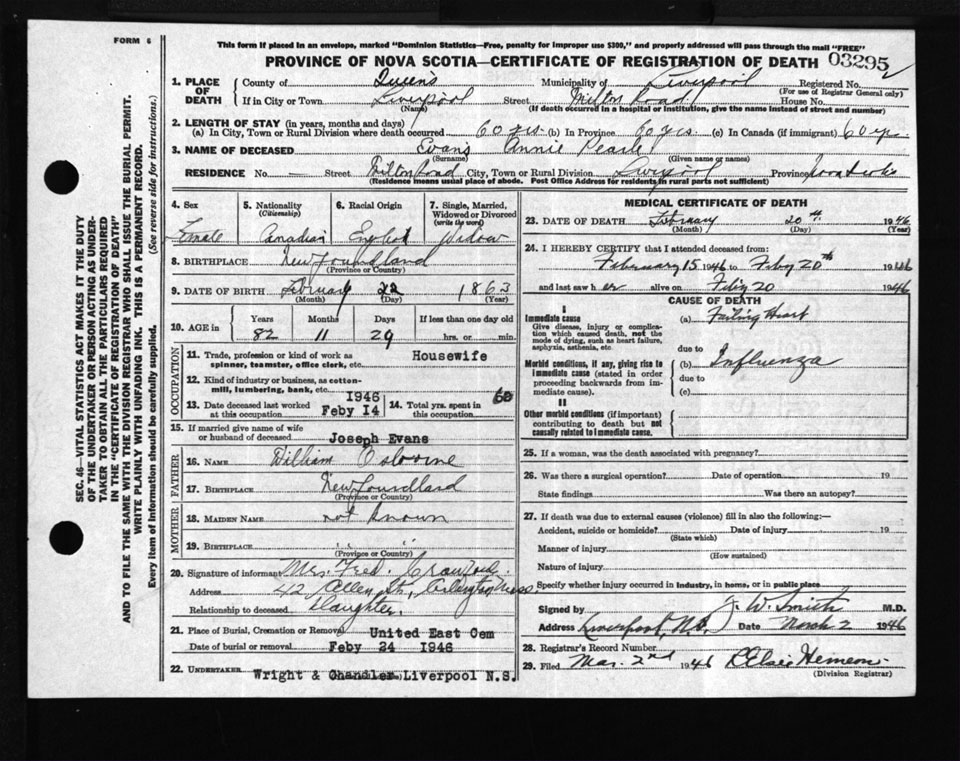 FORM 6
This form if placed in an envelope, marked "Dominion Statistics—Free, penalty for improper use $300," and properly addressed will pass through the mail "FREE"
PROVINCE OF NOVA SCOTIA—CERTIFICATE OF REGISTRATION OF DEATH 03295
1. PLACE OF DEATH
County of Queen's Municipality of Liverpool Registered No.
(For use of Registrar General only)
If in City or Town Liverpool Street Milton Road House No.
(Name) (If death occurred in a hospital or institution, give the name instead of street and number)
2. LENGTH OF STAY (in years, months and days)
(a) In City, Town or Rural Division where death occurred 60 yrs. (b) In Province 60 yrs. (c) In Canada (if immigrant) 60 yr.
3. NAME OF DECEASED Evans Annie Pearle
(Surname) (Given name or names)
RESIDENCE No. — Street Milton Road City, Town or Rural Division Liverpool Province Nova Scotia
(Residence means usual place of abode. Post Office Address for residents in rural parts not sufficient)
SEC. 46—VITAL STATISTICS ACT MAKES IT THE DUTY
OF THE UNDERTAKER OR PERSON ACTING AS UNDER-
TAKER TO OBTAIN ALL THE PARTICULARS REQUIRED
IN THE "CERTIFICATE OF REGISTRATION OF DEATH"
AND TO FILE THE SAME WITH THE DIVISION REGISTRAR WHO SHALL ISSUE THE BURIAL PERMIT.
WRITE PLAINLY WITH UNFADING INK. THIS IS A PERMANENT RECORD.
Every item of Information should be carefully supplied. (See reverse side for instructions.)
4. Sex 5. Nationality (Citizenship) 6. Racial Origin 7. Single, Married, Widowed or Divorced (write the word)
Female Canadian English Widow
8. BIRTHPLACE Newfoundland
(Province or Country)
9. DATE OF BIRTH February 22 1863
(Month) (Day) (Year)
10. AGE in Years Months Days If less than one day old
82 11 29 hrs. or min.
OCCUPATION
11. Trade, profession or kind of work as spinner, teamster, office clerk, etc. Housewife
12. Kind of industry or business, as cotton-mill, lumbering, bank, etc.
13. Date deceased last worked at this occupation 1946 Feby 14 14. Total yrs. spent in this occupation 60
15. If married give name of wife or husband of deceased Joseph Evans
FATHER
16. NAME William Osborne
17. BIRTHPLACE Newfoundland
(Province or Country)
MOTHER
18. MAIDEN NAME not known
19. BIRTHPLACE " "
(Province or Country)
20. Signature of informant Mrs. Fred. Crawford
Address 42 Allen St., Arlington Mass.
Relationship to deceased Daughter.
21. Place of Burial, Cremation or Removal United East Cem
Date of burial or removal Feby 24 1946
22. UNDERTAKER Wright & Chandler Liverpool N.S.
MEDICAL CERTIFICATE OF DEATH
23. DATE OF DEATH February 20th 1946
(Month) (Day)
24. I HEREBY CERTIFY that I attended deceased from:
February 15 1946 to Feby 20th 1946
and last saw her alive on Feby 20 1946
CAUSE OF DEATH
I
Immediate cause
Give disease, injury or complication which caused death, not the mode of dying, such as heart failure, asphyxia, asthenia, etc.
(a) Failing Heart
due to
Morbid conditions, if any, giving rise to immediate cause (stated in order proceeding backwards from immediate cause).
(b) Influenza
due to
(c)
II
Other morbid conditions (if important) contributing to death but not causally related to immediate cause.
25. If a woman, was the death associated with pregnancy?
26. Was there a surgical operation? Date of operation 19
State findings Was there an autopsy?
27. If death was due to external causes (violence) fill in also the following:—
Accident, suicide or homicide? Date of injury 19
(State which)
Manner of injury
(How sustained)
Nature of injury
Specify whether injury occurred in industry, in home, or in public place
Signed by J. W. Smith M.D.
Address Liverpool, N.S. Date March 2 1946
28. Registrar's Record Number
29. Filed Mar. 2nd 1946 Elsie Hemeon
(Division Registrar)